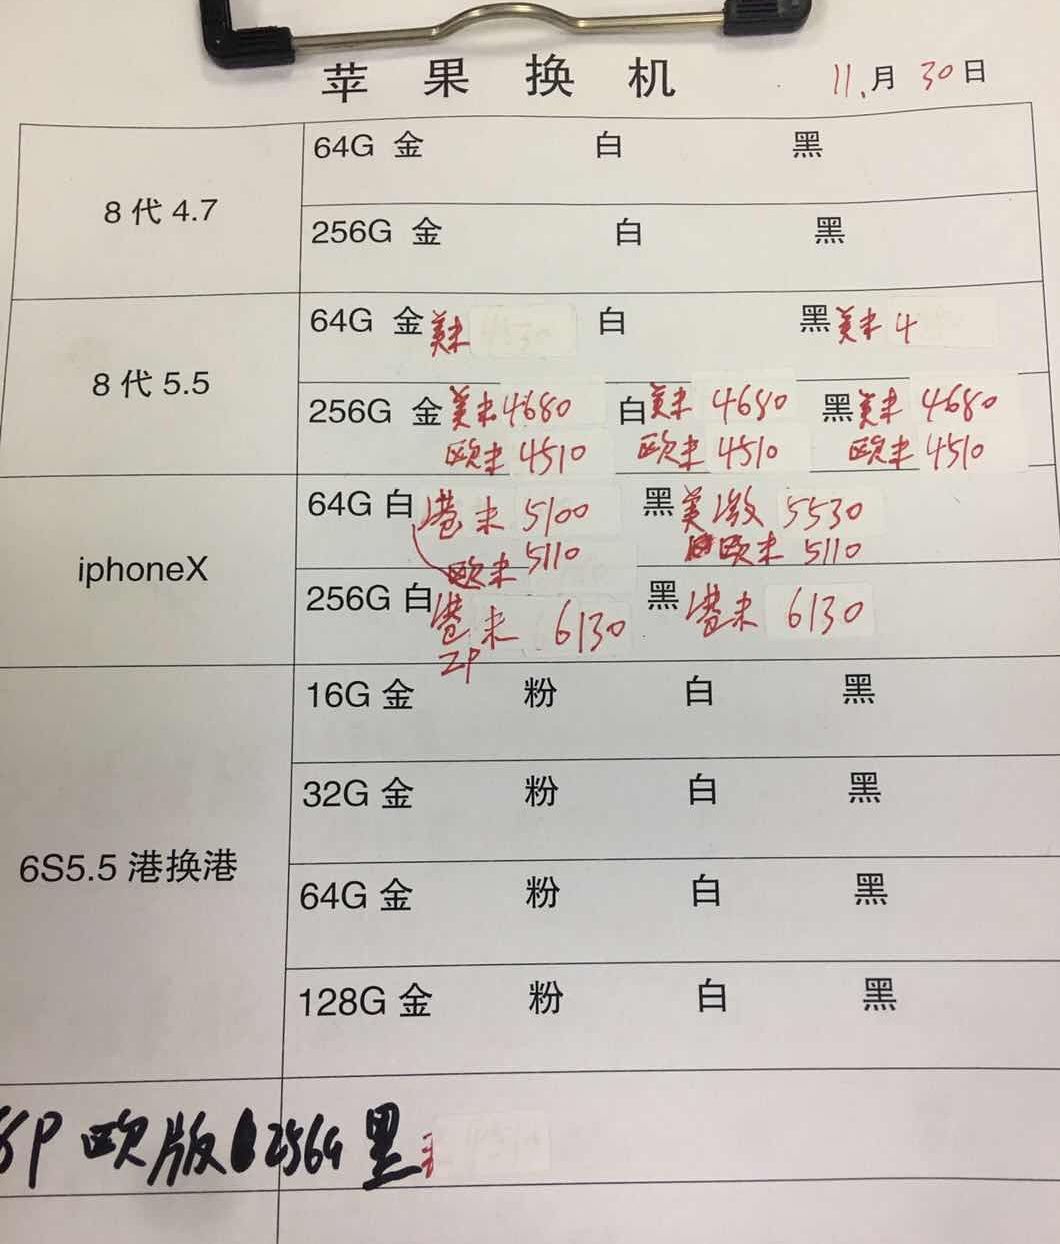 苹果换机 11.月30日
8代4.7
64G 金 白 黑
256G 金 白 黑
8代5.5
64G 金美未 白 黑美未 4
256G 金美未4680 白美未 4680 黑美未 4680
欧未 4510 欧未 4510 欧未 4510
iphoneX
64G 白港未 5100 黑美激 5530
欧未 5110 欧未 5110
256G 白港未 6130 黑港未 6130
ZP
6S5.5港换港
16G 金 粉 白 黑
32G 金 粉 白 黑
64G 金 粉 白 黑
128G 金 粉 白 黑
8P 欧版 256G 黑